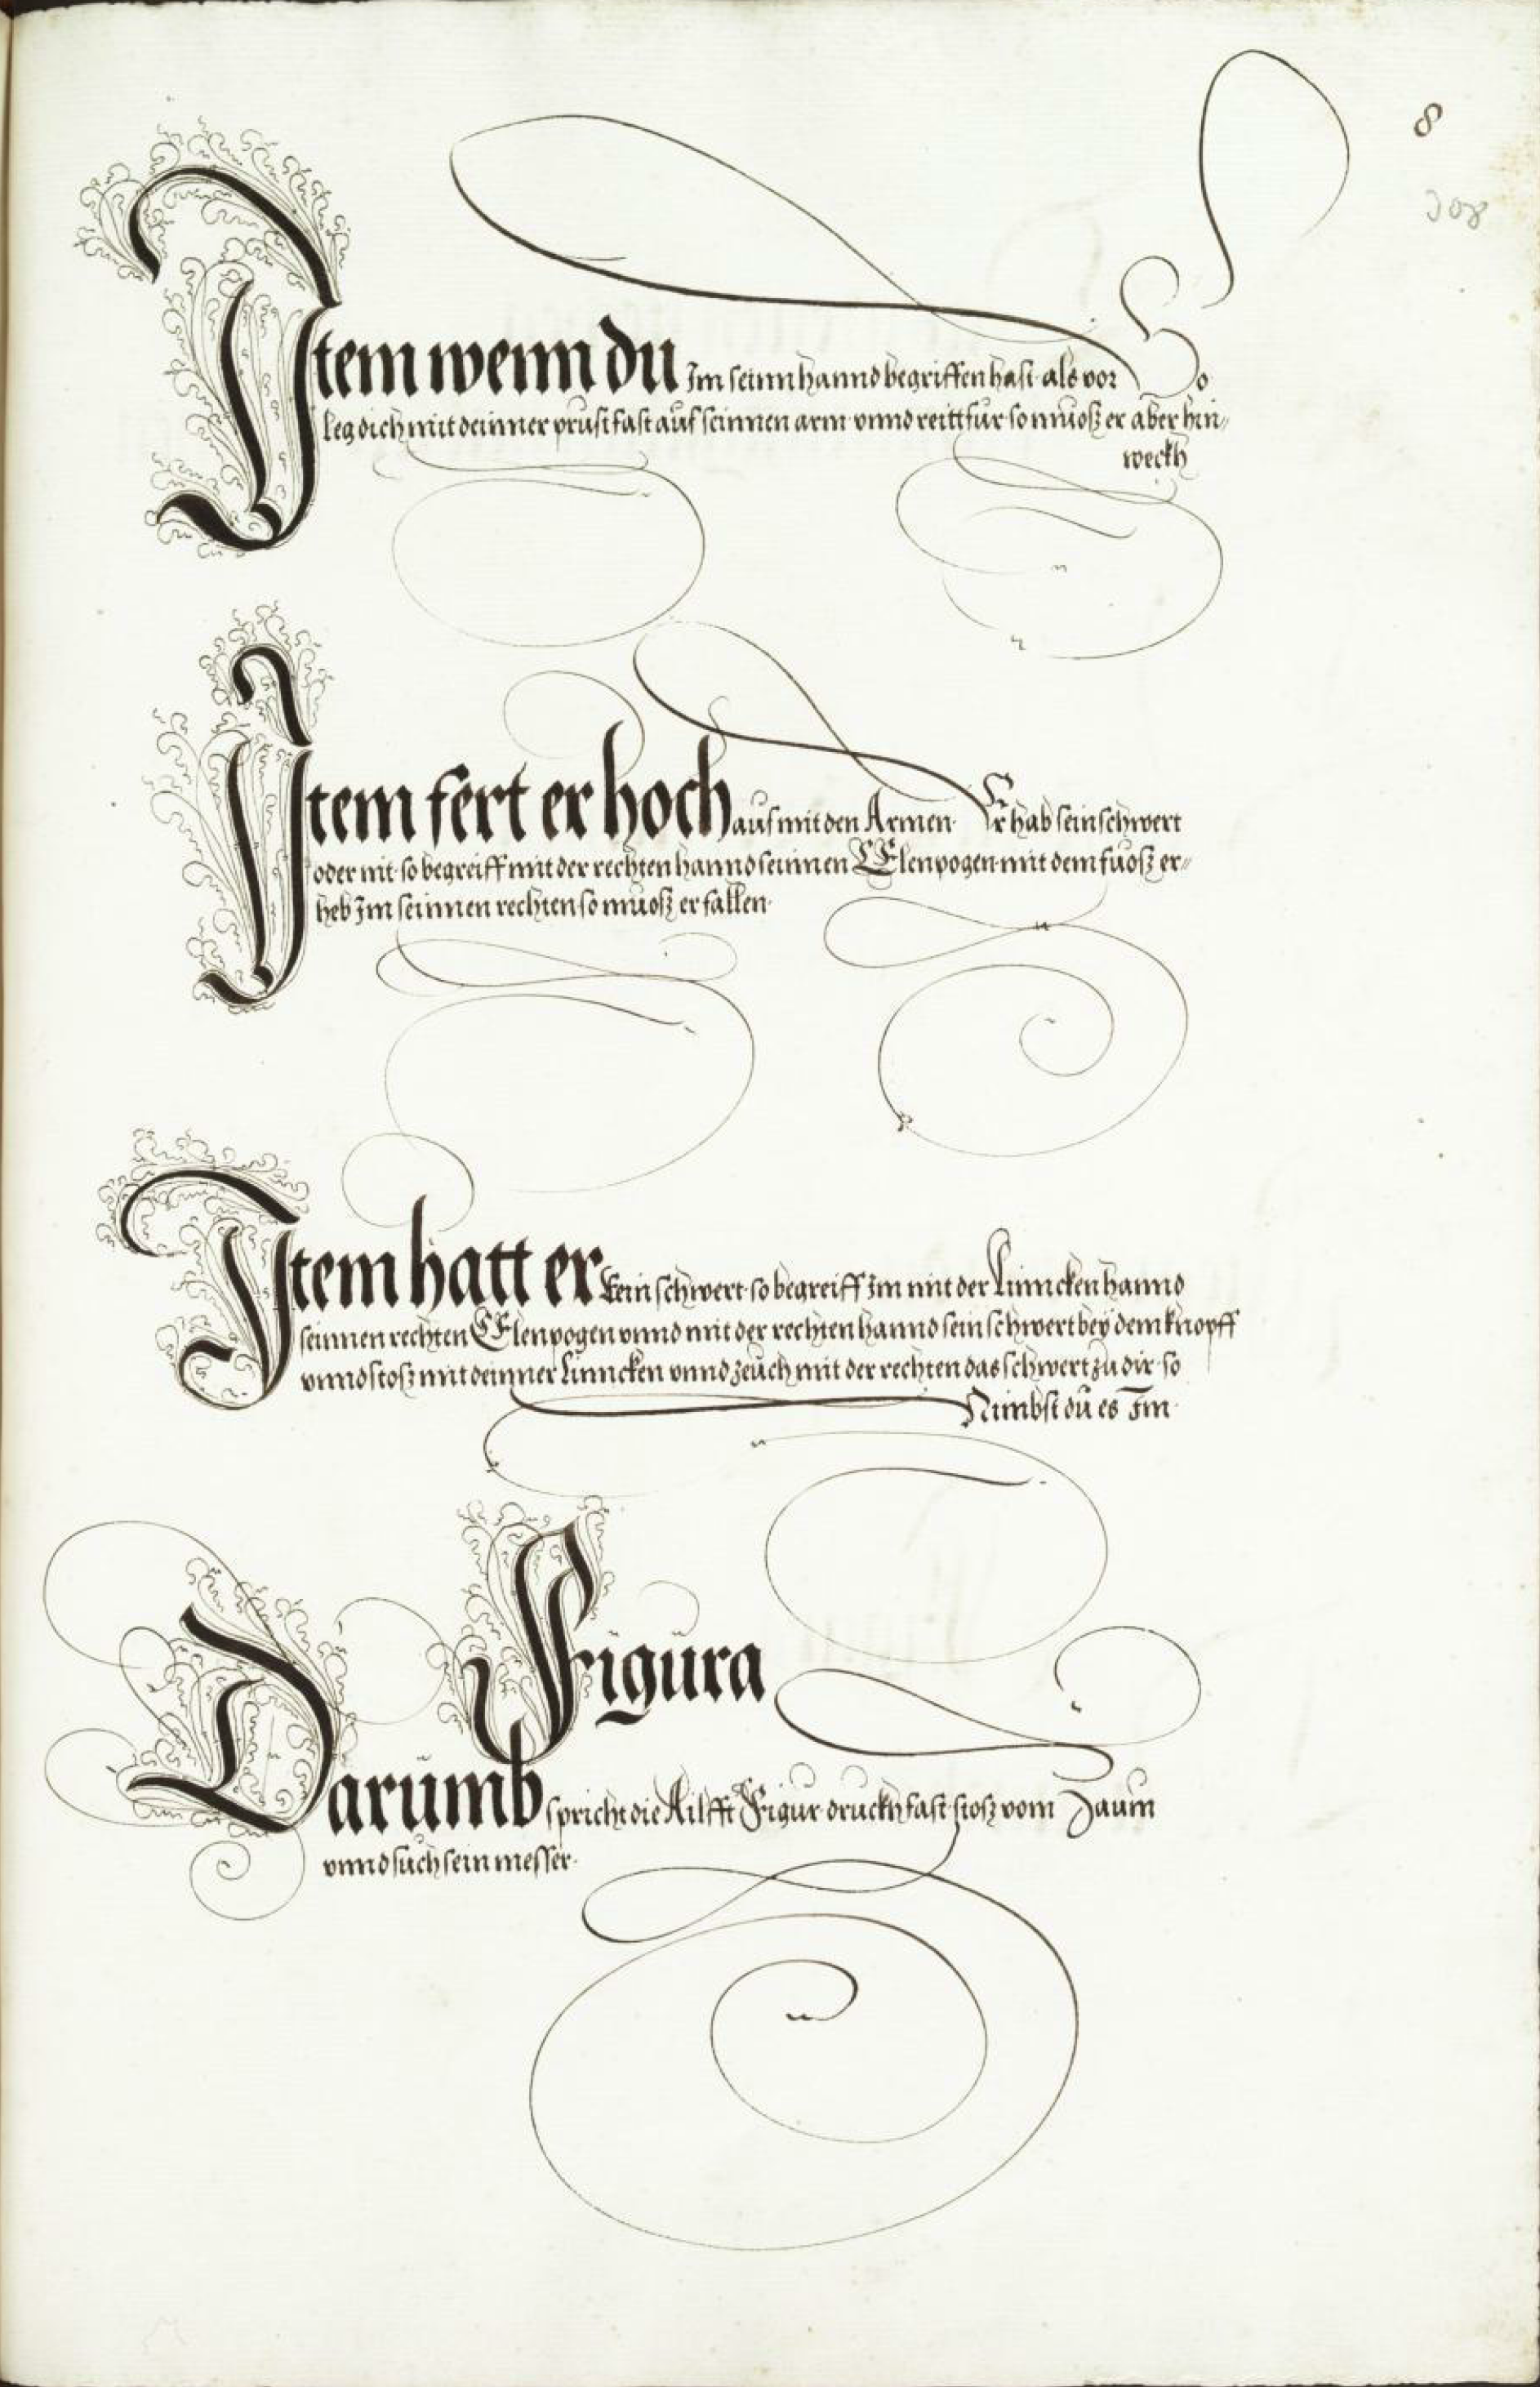 8
308
Item wenn du Im seinn hannd begriffen hast als vor So
leg dich mit deinner prust fast auf seinnen arm vnnd reitt für so muosz er aber hin„
weckh
Item fert er hoch aus mit den Armen. Er hab sein schwert
oder nit so begreiff mit der rechten hannd seinnen Elenpogen mit dem fuosz er„
heb Im seinnen rechten so muosz er fallen.
Item hatt er sein schwert so begreiff Im mit der Linncken hannd
seinnen rechten Elenpogen vnnd mit der rechten hannd sein schwert bey dem knopff
vnnd stosz mit deinner Linncken vnnd zeuch mit der rechten das schwert zu dir so
Nimbst du es Im.
Figura
Darumb spricht die Ailfft Figur druckh fast stosz vom Zaum
vnnd such sein messer.